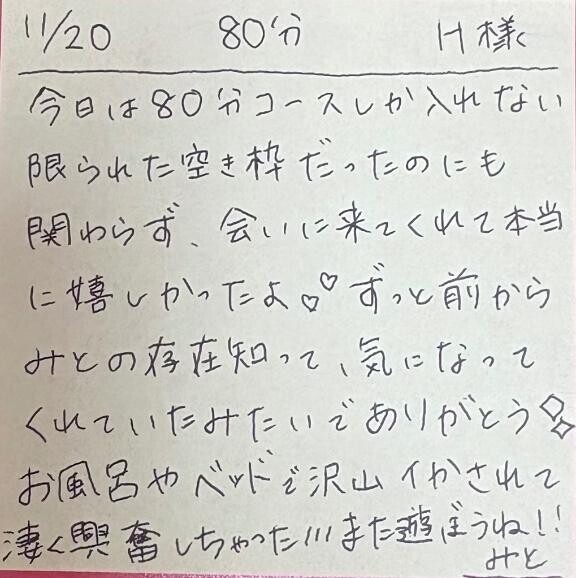 11/20 80分 H様
今日は80分コースしか入れない
限られた空き枠だったのにも
関わらず、会いに来てくれて本当
に嬉しかったよ♡♡ずっと前から
みとの存在知って、気になって
くれていたみたいでありがとう◇◇
お風呂やベッドで沢山イかされて
凄く興奮しちゃった!!!また遊ぼうね!!
みと